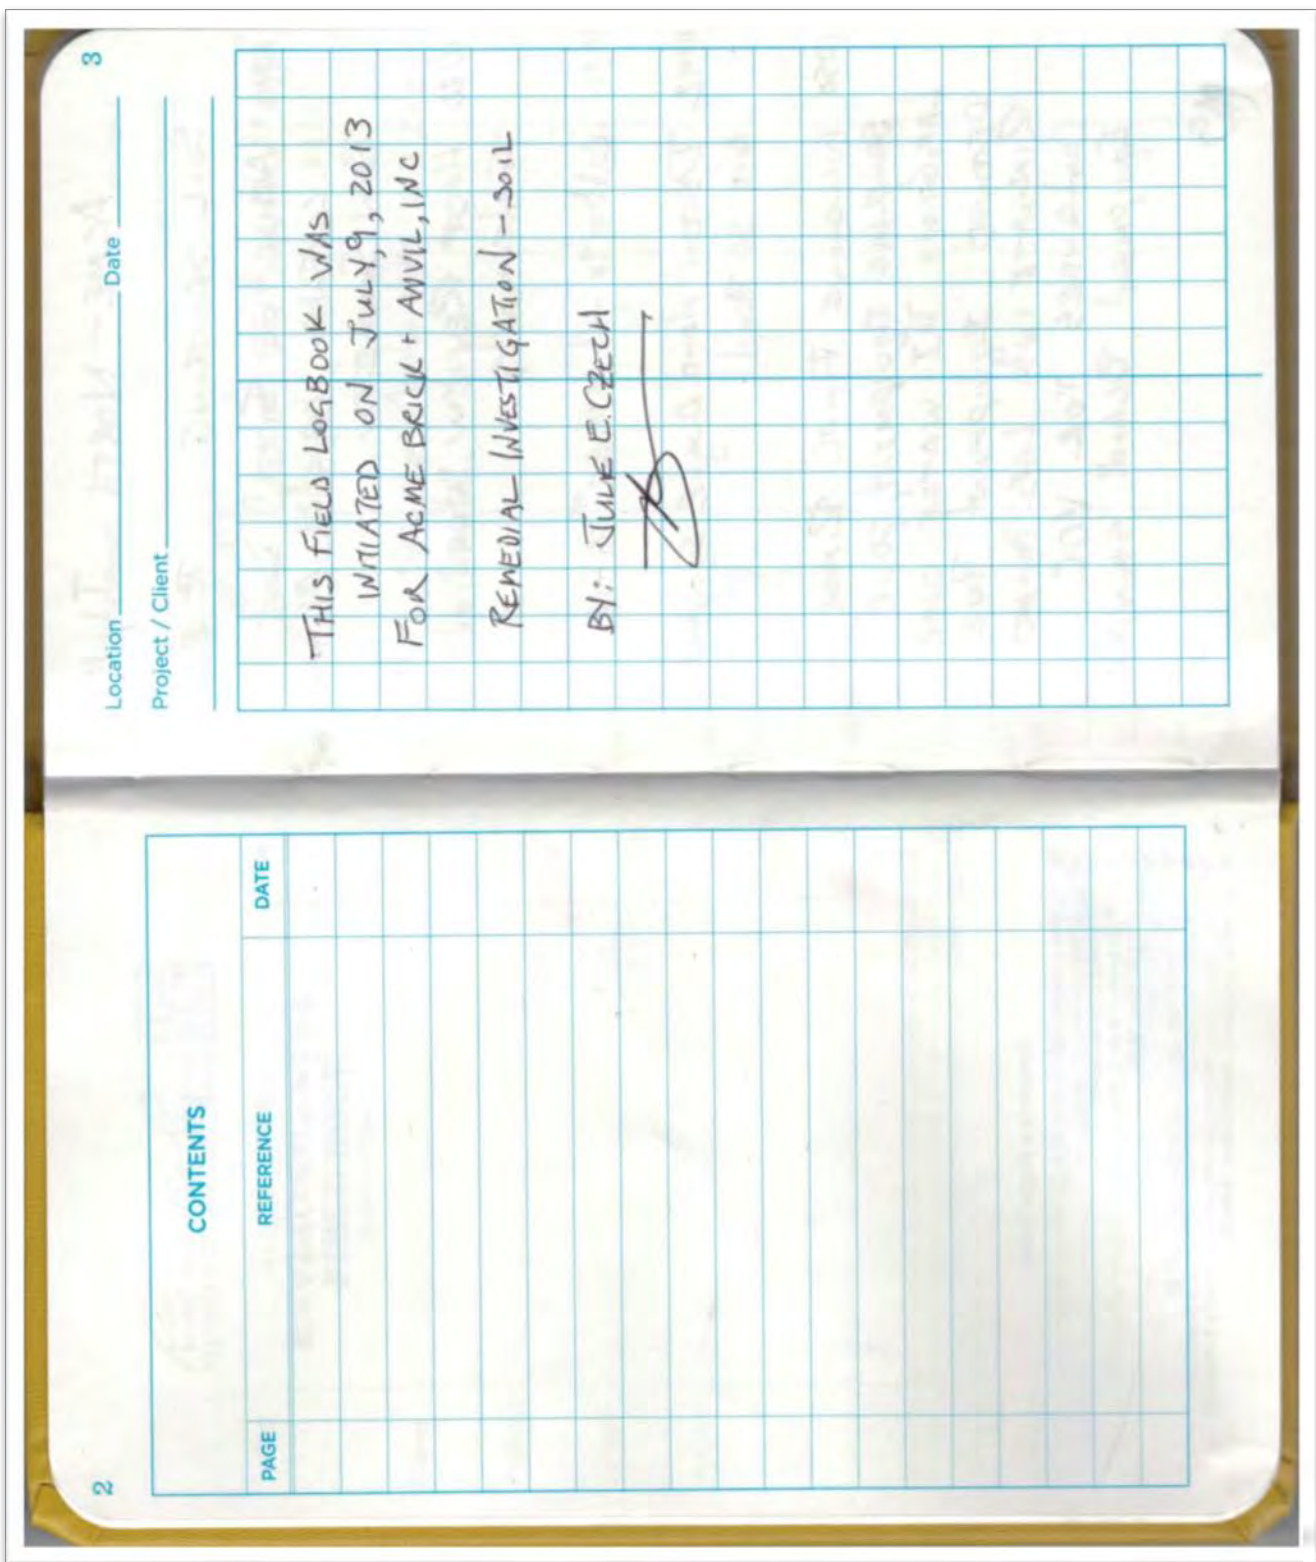 2
CONTENTS
PAGE REFERENCE DATE
3
Location Date
Project / Client
THIS FIELD LOGBOOK WAS
INITIATED ON JULY, 9, 2013
FOR ACME BRICK + ANVIL, INC
REMEDIAL INVESTIGATION - SOIL
BY: JULIE E. CZECH